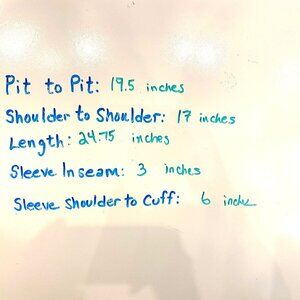 Pit to Pit: 19.5 inches
Shoulder to Shoulder: 17 inches
Length: 24.75 inches
Sleeve Inseam: 3 inches
Sleeve Shoulder to Cuff: 6 inches